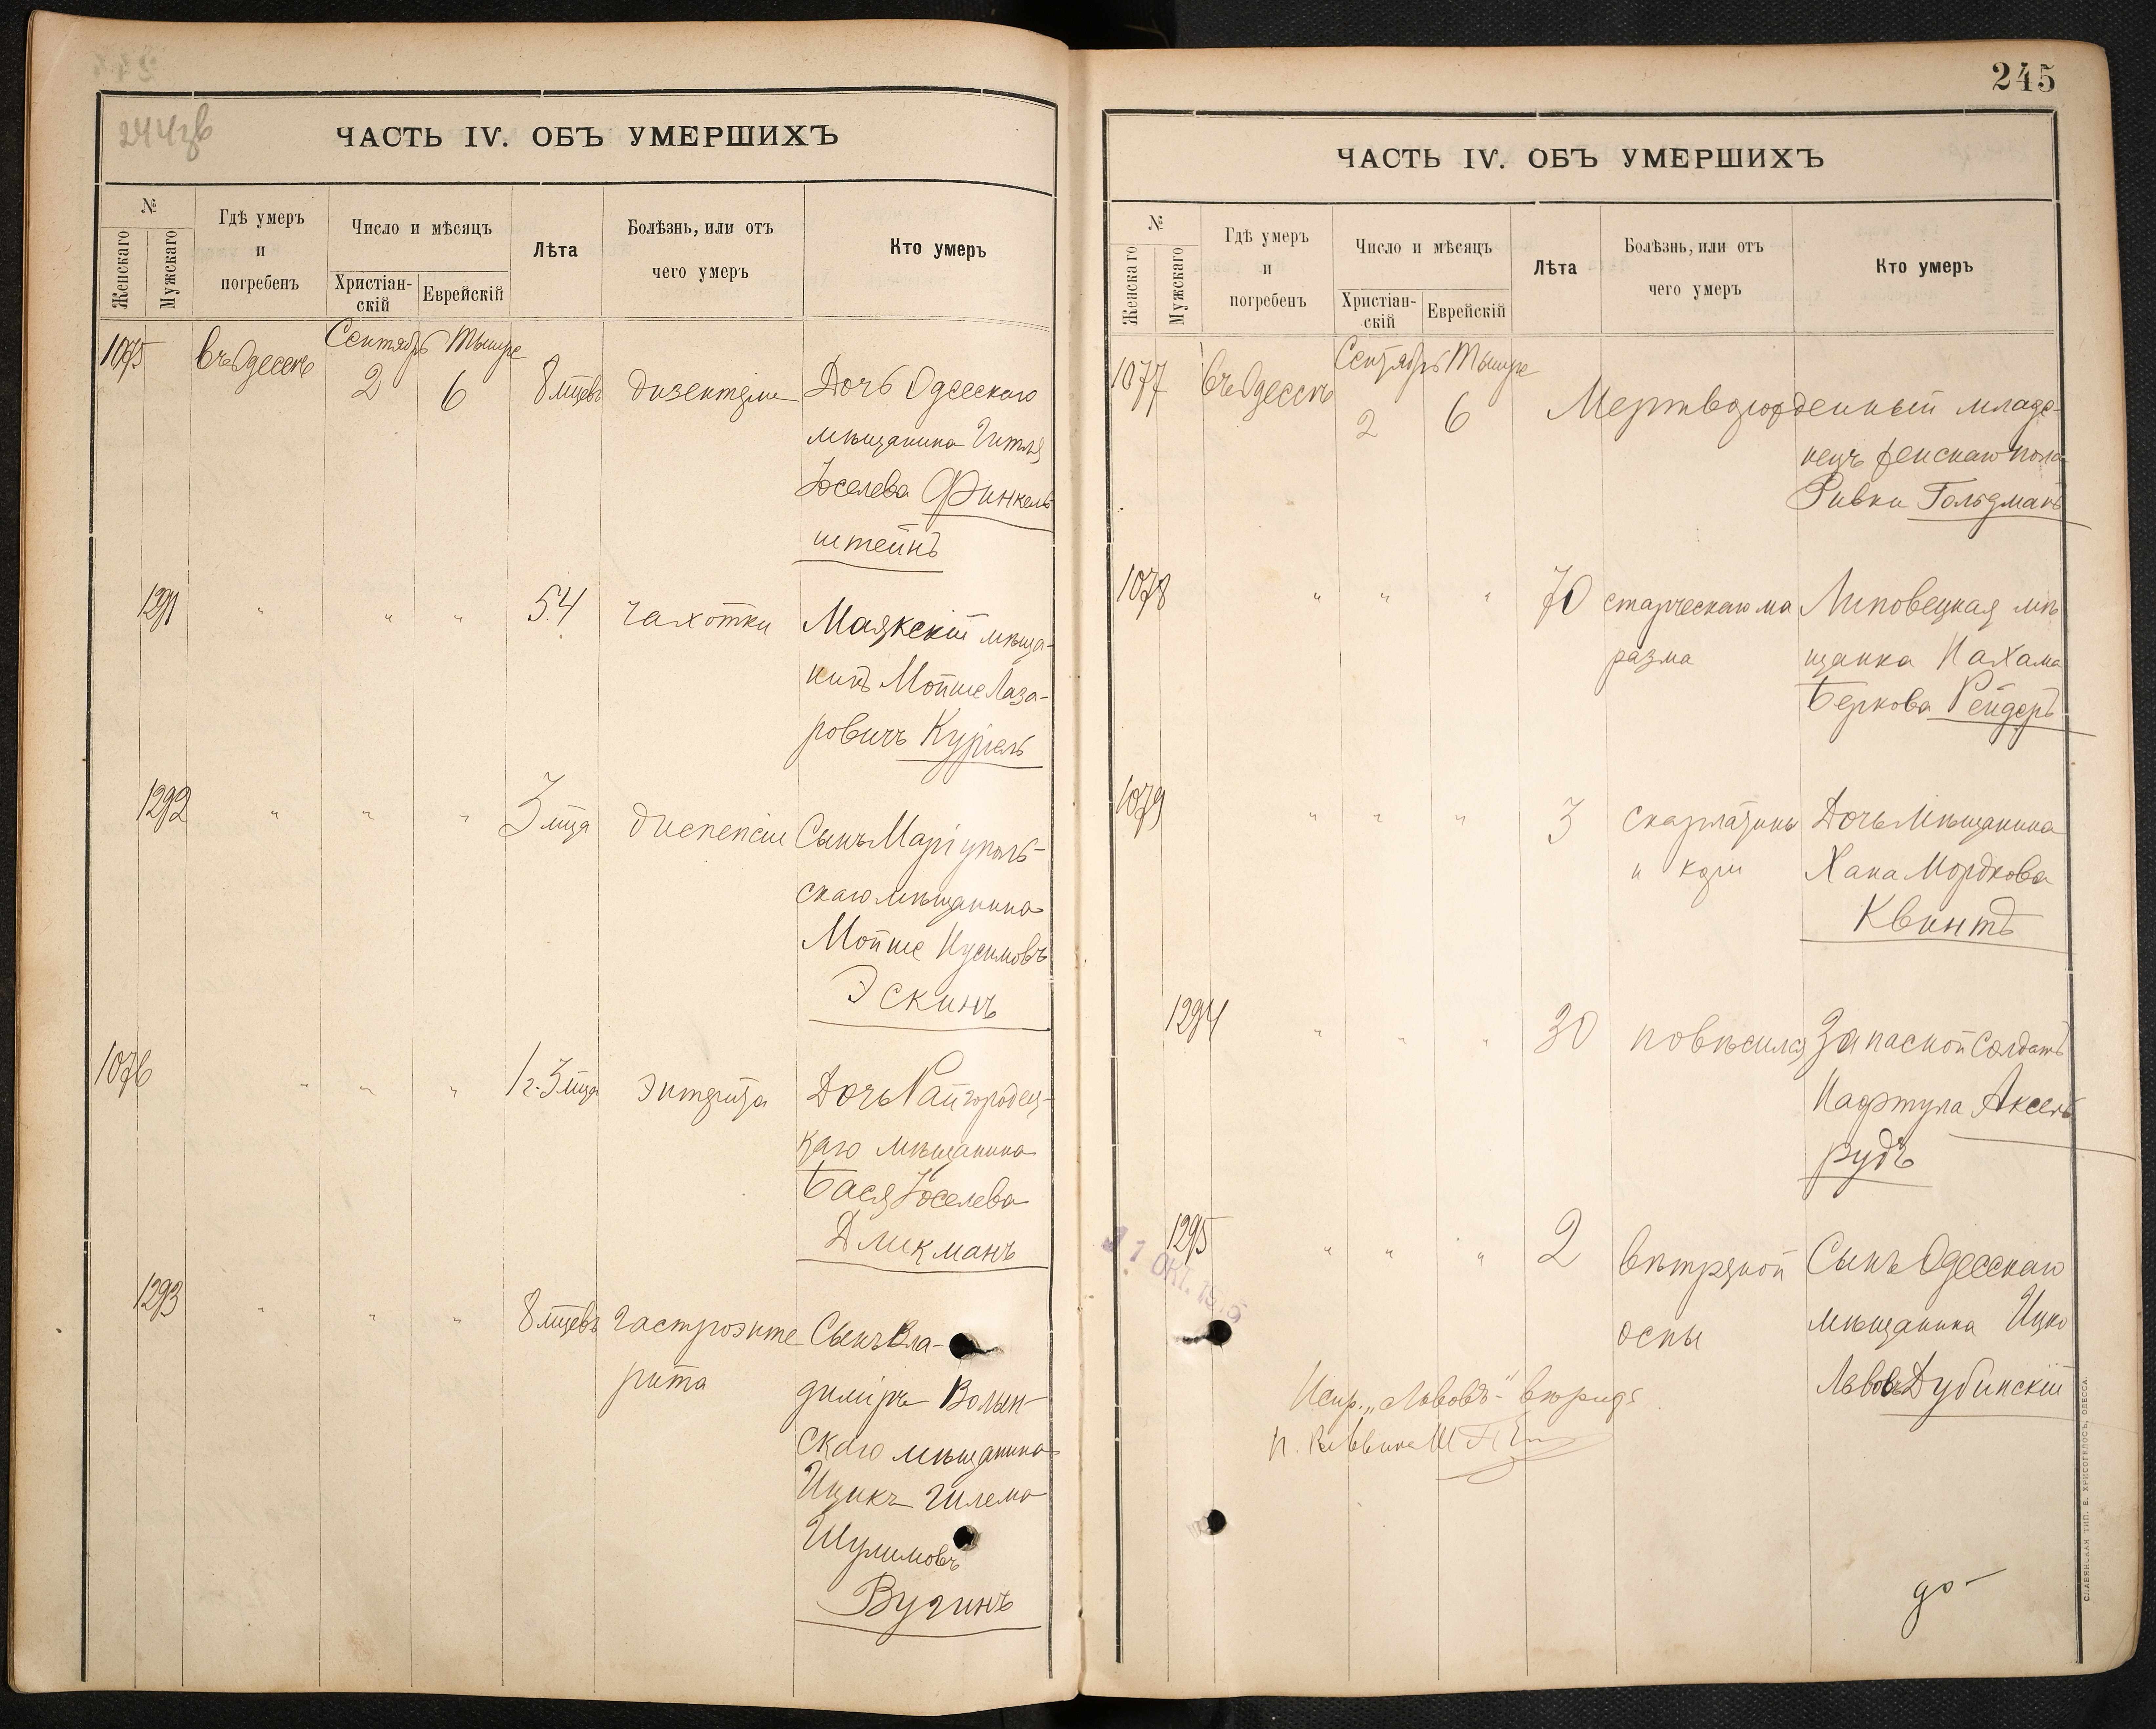 244об
ЧАСТЬ IV. ОБЪ УМЕРШИХЪ
№
Женскаго
Мужскаго
Гдѣ умеръ
и
погребенъ
Число и мѣсяцъ
Христіан-
скій
Еврейскій
Лѣта
Болѣзнь, или отъ
чего умеръ
Кто умеръ
1075 въ Одессѣ Сентябрь Тышре
2 6 8 мцевъ дизентеріи Дочь Одесскаго
мѣщанина Гитля
Іоселева Финкель-
штейнъ
1291 " " " 54 чахотки Маякскій мѣща-
нинъ Мойше Лаза-
ровичъ Куріель
1292 " " " 3 мца диспепсіи Сынъ Маріуполь-
скаго мѣщанина
Мойше Нусимовъ
Эскинъ
1076 " " " 1 г. 3 мца энтерита Дочь Райгородец-
каго мѣщанина
Бася Іоселева
Дликманъ
1293 " " " 8 мцевъ гастроэнте Сынъ Вла-
рита димiръ Волын-
скаго мѣщанина
Ицикъ Шлема
Шулимовъ
Вугинъ
245
ЧАСТЬ IV. ОБЪ УМЕРШИХЪ
№
Женскаго
Мужскаго
Гдѣ умеръ
и
погребенъ
Число и мѣсяцъ
Христіан-
скій
Еврейскій
Лѣта
Болѣзнь, или отъ
чего умеръ
Кто умеръ
1077 въ Одессѣ Сентябрь Тышре
2 6 Мертворожденный младе-
нецъ женскаго пола
Ривки Гольдманъ
1078 " " " 70 старческаго ма Липовецкая мѣ
разма щанка Нахама
Беркова Рейдеръ
1079 " " " 3 скарлатины Дочь Мѣщанина
и кори Хана Мордкова
Квинтъ
1294 " " " 30 повѣсился Запасной солдатъ
Нафтула Аксель
рудъ
1295 " " " 2 вѣтряной Сынъ Одесскаго
оспы мѣщанина Ицко
Львовъ Дубинскій
ОКТ.
Испр. „Львовъ"
п. Раввина
до-
СЛАВЯНСКАЯ ТИП. Е. ХРИСОГЕЛОСЪ, ОДЕССА.